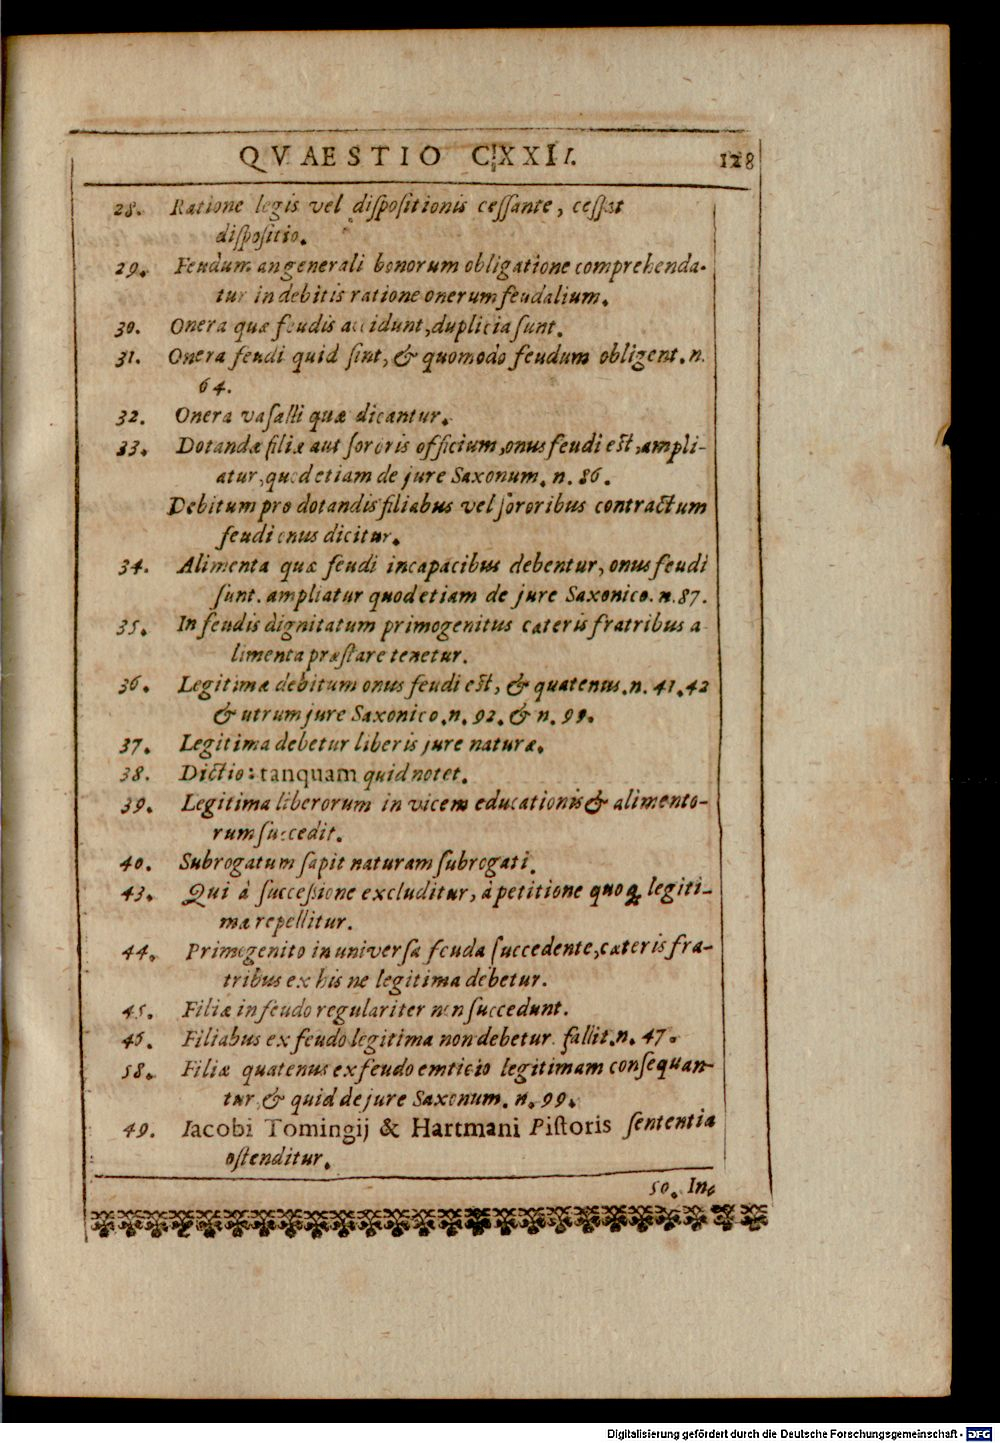 QVAESTIO CXXII. 128
28. Ratione legis vel dispositionis cessante, cessat
dispositio.
29. Feudum an generali bonorum obligatione comprehenda-
tur in debitis ratione onerum feudalium.
30. Onera quæ feudis accidunt, duplicia sunt.
31. Onera feudi quid sint, & quomodo feudum obligent. n.
64.
32. Onera vasalli quæ dicantur.
33. Dotandæ filiæ aut sororis officium, onus feudi est, ampli-
atur, quod etiam de jure Saxonum. n. 86.
Debitum pro dotandis filiabus vel sororibus contractum
feudi onus dicitur.
34. Alimenta quæ feudi incapacibus debentur, onus feudi
sunt. ampliatur quod etiam de jure Saxonico. n. 87.
35. In feudis dignitatum primogenitus cæteris fratribus a
limenta præstare tenetur.
36. Legitimæ debitum onus feudi est, & quatenus. n. 41. 42
& utrum jure Saxonico. n. 92. & n. 99.
37. Legitima debetur liberis jure naturæ.
38. Dictio: tanquam quid notet.
39. Legitima liberorum in vicem educationis & alimento-
rum succedit.
40. Subrogatum sapit naturam subrogati.
43. Qui à successione excluditur, à petitione quoq; legiti-
ma repellitur.
44. Primogenito in universa feuda succedente, cæteris fra-
tribus ex his ne legitima debetur.
45. Filiæ in feudo regulariter non succedunt.
46. Filiabus ex feudo legitima non debetur. fallit. n. 47.
58. Filiæ quatenus ex feudo emticio legitimam consequan-
tur, & quid de jure Saxonum. n. 99.
49. Iacobi Tomingij & Hartmani Pistoris sententia
ostenditur.
50. In-
Digitalisierung gefördert durch die Deutsche Forschungsgemeinschaft - DFG